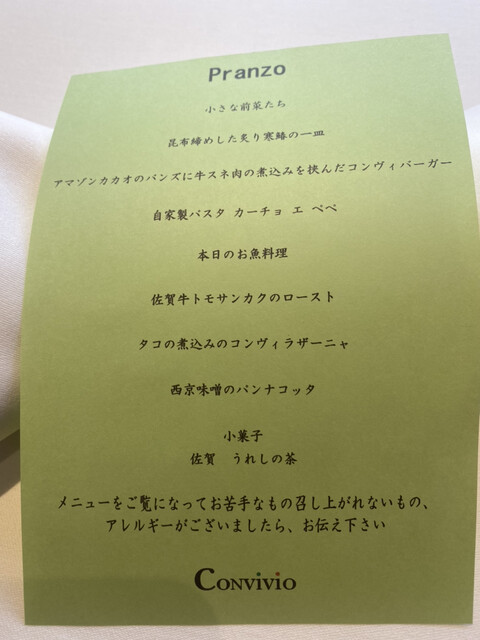 Pranzo
小さな前菜たち
昆布締めした炙り寒鰆の一皿
アマゾンカカオのバンズに牛スネ肉の煮込みを挟んだコンヴィバーガー
自家製パスタ カーチョ エ ペペ
本日のお魚料理
佐賀牛トモサンカクのロースト
タコの煮込みのコンヴィラザーニャ
西京味噌のパンナコッタ
小菓子
佐賀 うれしの茶
メニューをご覧になってお苦手なもの召し上がれないもの、
アレルギーがございましたら、お伝え下さい
CONVIVIO